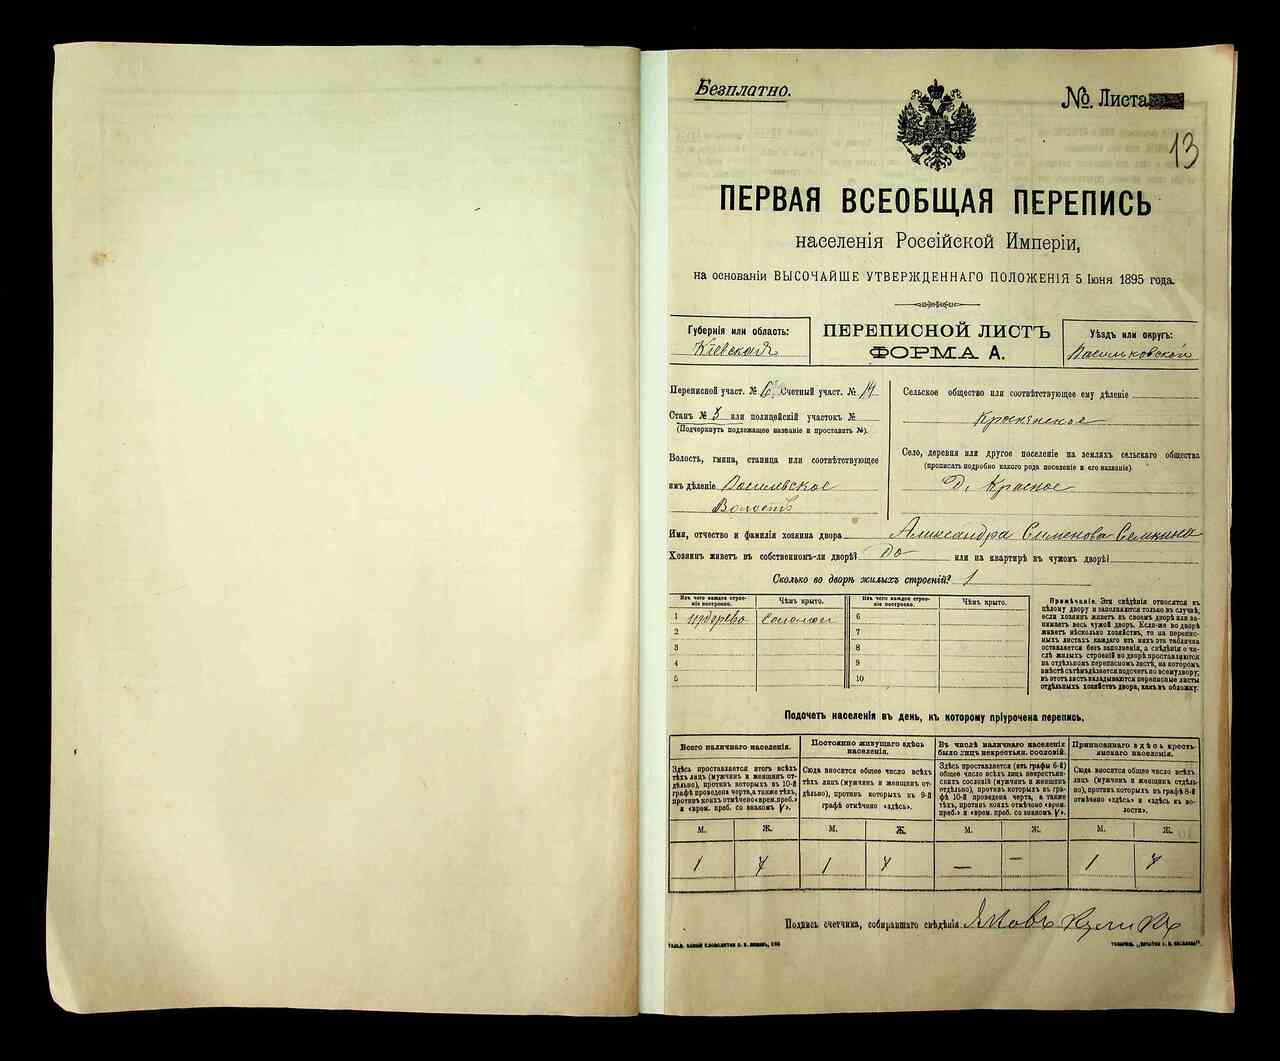 Безплатно.
№ Листа
13
ПЕРВАЯ ВСЕОБЩАЯ ПЕРЕПИСЬ
населенія Россійской Имперіи,
на основаніи ВЫСОЧАЙШЕ УТВЕРЖДЕННАГО ПОЛОЖЕНІЯ 5 Іюня 1895 года.
Губернія или область:
Кіевская
ПЕРЕПИСНОЙ ЛИСТЪ
ФОРМА А.
Уѣздъ или округъ:
Васильковской
Переписной участ. № 6 Счетный участ. № 14
Станъ № 3 или полицейскій участокъ №
(Подчеркнуть подлежащее названіе и проставить №).
Волость, гмина, станица или соотвѣтствующее
имъ дѣленіе
Волость
Сельское общество или соотвѣтствующее ему дѣленіе
Краснянское
Село, деревня или другое поселеніе на земляхъ сельскаго общества
(прописать подробно какого рода поселеніе и его названіе).
Д. Красное
Имя, отчество и фамилія хозяина двора Александра Сименова
Хозяинъ живетъ въ собственномъ-ли дворѣ? До или на квартирѣ въ чужомъ дворѣ?
Сколько во дворѣ жилыхъ строеній? 1
Изъ чего каждое строе-
ніе построено.
Чѣмъ крыто.
Изъ чего каждое строе-
ніе построено.
Чѣмъ крыто.
1 издерево Соломой 6
2 7
3 8
4 9
5 10
Примѣчаніе. Эти свѣдѣнія относятся къ
цѣлому двору и заполняются только въ случаѣ,
если хозяинъ живетъ въ своемъ дворѣ или за-
нимаетъ весь чужой дворъ. Если-же во дворѣ
живетъ нѣсколько хозяйствъ, то на перепис-
ныхъ листахъ каждаго изъ нихъ эта табличка
оставляется безъ заполненія, а свѣдѣнія о чи-
слѣ жилыхъ строеній во дворѣ проставляются
на отдѣльномъ переписномъ листѣ, на которомъ
вмѣстѣ съ тѣмъ дѣлается подсчетъ по всему двору;
въ этотъ листъ вкладываются переписные листы
отдѣльныхъ хозяйствъ двора, какъ въ обложку.
Подсчетъ населенія въ день, къ которому пріурочена перепись.
Всего наличнаго населенія.
Здѣсь проставляется итогъ всѣхъ
тѣхъ лицъ (мужчинъ и женщинъ от-
дѣльно), противъ которыхъ въ 10-й
графѣ проведена черта, а также тѣхъ,
противъ коихъ отмѣчено «врем. преб.»
и «врем. преб. со знакомъ V».
Постоянно живущаго здѣсь
населенія.
Сюда вносится общее число всѣхъ
тѣхъ лицъ (мужчинъ и женщинъ от-
дѣльно), противъ которыхъ въ 9-й
графѣ отмѣчено «здѣсь».
Въ числѣ наличнаго населенія
было лицъ некрестьян. сословій.
Здѣсь проставляется (изъ графы 6-й)
общее число всѣхъ лицъ некрестьян-
скихъ сословій (мужчинъ и женщинъ
отдѣльно), противъ которыхъ въ гра-
фѣ 10-й проведена черта, а также
тѣхъ, противъ коихъ отмѣчено «врем.
преб.» и «врем. преб. со знакомъ V».
Приписаннаго здѣсь кресть-
янскаго населенія.
Сюда вносится общее число всѣхъ
лицъ (мужчинъ и женщинъ отдѣль-
но), противъ которыхъ въ графѣ 8-й
отмѣчено «здѣсь» и «здѣсь въ во-
лости».
М. Ж. М. Ж. М. Ж. М. Ж.
1 4 1 4 — — 1 4
Подпись счетчика, собиравшаго свѣдѣнія Яковъ